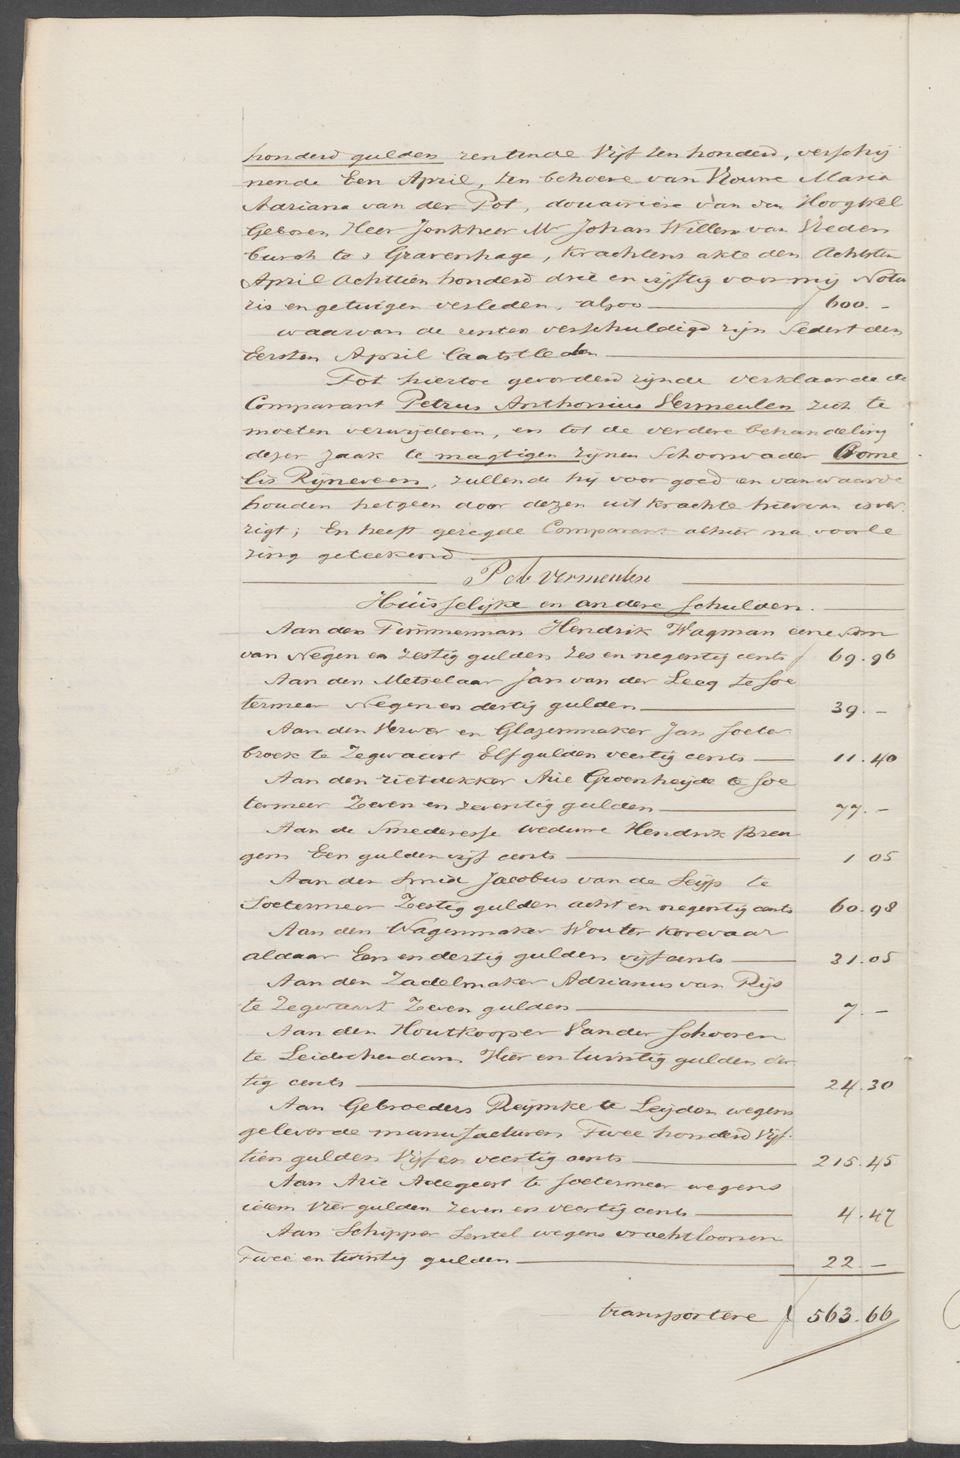 honderd gulden rentende Vijf ten honderd, verschij
nende Een April, ten behoeve van Vrouwe Maria
Adriana van der Pot, douairiere van den Hoogwel
Geboren Heer Jonkheer Mr Johan Willem van Vreden
burch te s Gravenhage, krachtens akte den Achtsten
April Achttien honderd drie en vijftig voor mij Nota
ris en getuigen verleden, alzoo f 600.-
waarvan de renten verschuldigd zijn Sedert den
Eersten April laatstleden
Tot hiertoe gevorderd zijnde verklaarde de
Comparant Petrus Anthonius Vermeulen zich te
moeten verwijderen, en tot de verdere behandeling
dezer zaak te magtigen zijnen Schoonvader Corne
lis Rijneveen, zullende hij voor goed en van waarde
houden hetgeen door dezen uit krachte hiervan is ver
rigt; En heeft gezegde Comparant alhier na voorle
zing geteekend
P A Vermeulen
Huisselijke en andere schulden.
Aan den Timmerman Hendrik Wagman eene som
van Negen en Zestig gulden Zes en negentig cents f 69.96
Aan den Metselaar Jan van der Leeg te Soe
termeer Negen en dertig gulden 39.-
Aan den Verwer en Glazenmaker Jan Soete
broek te Zegwaart Elf gulden veertig cents 11.40
Aan den rietdekker Arie Groenheijde te Soe
termeer Zeven en zeventig gulden 77.-
Aan de Smederesse weduwe Hendrik Bren
gem Een gulden vijf cents 1 05
Aan den Smid Jacobus van de Seijp te
Soetermeer Zestig gulden acht en negentig cents 60.98
Aan den Wagenmaker Wouter Korevaar
aldaar Een en dertig gulden vijf cents 31.05
Aan den Zadelmaker Adrianus van Rijs
te Zegwaart Zeven gulden 7.-
Aan den Houtkooper Van der Schooren
te Leidschendam Vier en twintig gulden der
tig cents 24.30
Aan Gebroeders Reijnke te Leijden wegens
geleverde manufacturen Twee honderd Vijf
tien gulden Vijf en veertig cents 215.45
Aan Arie Adegeest te Soetermeer wegens
idem Vier gulden Zeven en veertig cents 4.47
Aan Schipper Sentel wegens vrachtloonen
Twee en twintig gulden 22.-
transportere f 563.66